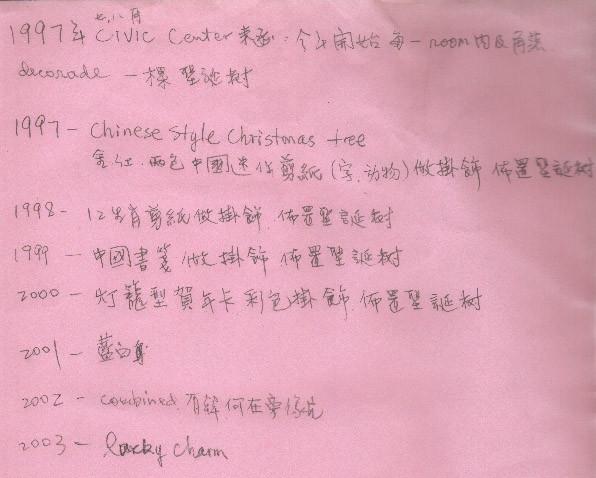 七、八月
1997年 Civic Center 來函：今年開始每一room內及角落
decorade 一棵聖誕樹
1997- Chinese style Christmas tree
金、紅 兩色中國 剪紙(字.动物)做掛飾 佈置聖誕樹
1998- 12生肖剪紙做掛飾.佈置聖誕樹
1999 - 中國書箋 做掛飾 佈置聖誕樹
2000 - 灯籠型賀年卡彩色掛飾.佈置聖誕树
2001 - 藍白
2002 - combined 有 何在旁
2003 - lucky charm